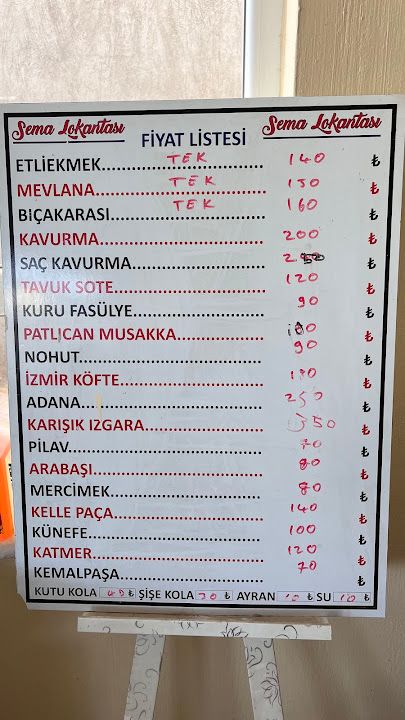 Sema Lokantası FİYAT LİSTESİ Sema Lokantası
ETLİEKMEK TEK 140 ₺
MEVLANA TEK 150 ₺
BIÇAKARASI TEK 160 ₺
KAVURMA 200 ₺
SAÇ KAVURMA ₺
TAVUK SOTE 120 ₺
KURU FASÜLYE 90 ₺
PATLICAN MUSAKKA ₺
NOHUT 90 ₺
İZMİR KÖFTE ₺
ADANA 250 ₺
KARIŞIK IZGARA 350 ₺
PİLAV 70 ₺
ARABAŞI 80 ₺
MERCİMEK 80 ₺
KELLE PAÇA 140 ₺
KÜNEFE 100 ₺
KATMER 120 ₺
KEMALPAŞA 70 ₺
KUTU KOLA ₺ ŞİŞE KOLA ₺ AYRAN ₺ SU 10 ₺